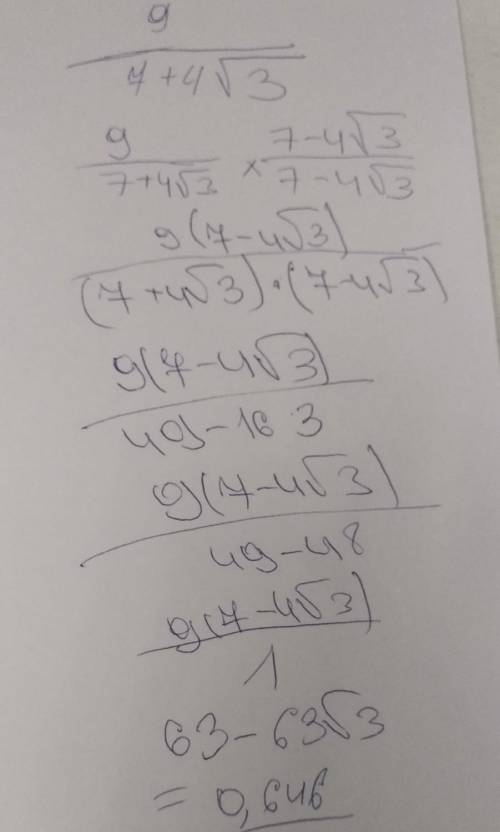 9
7+4√3
9 / 7+4√3 × 7-4√3 / 7-4√3
9(7-4√3)
(7+4√3)·(7-4√3)
9(7-4√3)
49-16 3
9(7-4√3)
49-48
9(7-4√3)
1
63-63√3
= 0,646